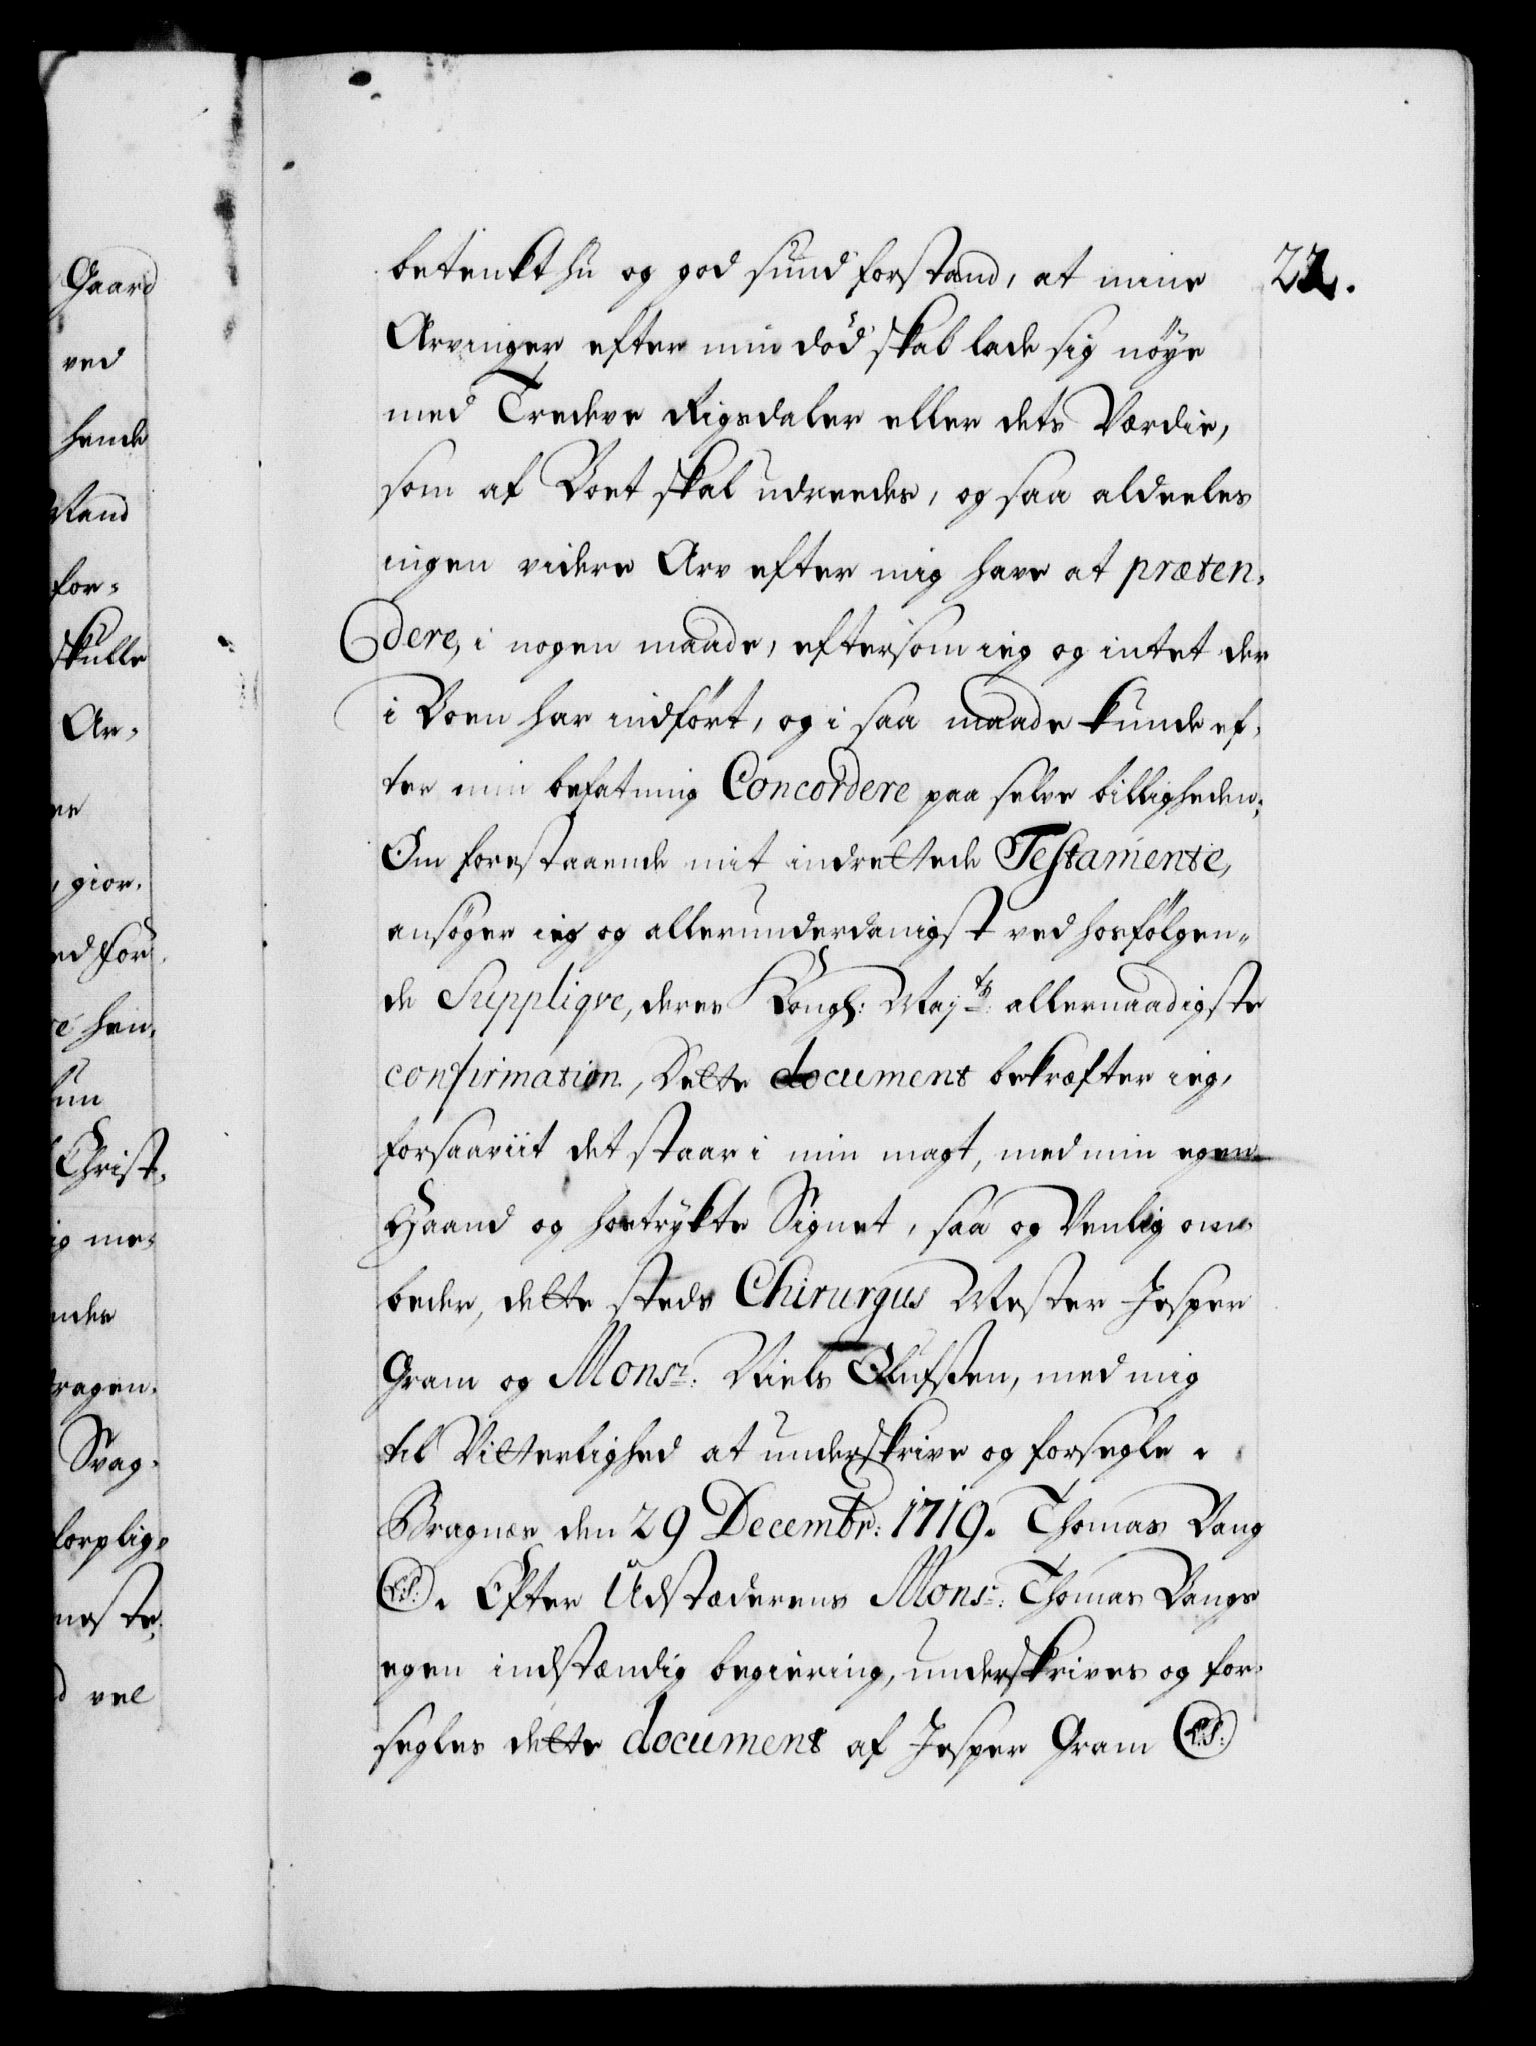 Gaard
ved
hende
stand
for-
skulle
Ar-
er
, gior-
ed for
re hen-
sum
Christ-
ig me-
ndes
tragen-
Svag-
forplig-
meste,
d vel
22.
betenkt hu og god sund forstand, at mine
Arvinger efter min död skal lade sig nöye
med Tredeve Rigsdaler eller dets Værdie,
som af Boet skal udreedes, og saa aldeeles
ingen videre Arv efter mig have at præten-
dere, i nogen maade, eftersom ieg og intet der
i Boen har indfört, og i saa maade kunde ef-
ter min befatning Concordere paa selve billigheden.
Om forestaaende mit indrettede Testamente,
ansöger ieg og allerunderdanigst ved hosfölgen-
de Suppliqve, deres Kongl: Maj:ts allernaadigste
confirmation, Dette document bekræfter ieg,
forsaaviit det staar i min magt, med min egen
Haand og hostrykte Signet, saa og Venlig om-
beder, dette steds Chirurgus Mester Jesper
Gram og Monsr: Niels Olufsen, med mig
til Vitterlighed at underskrive og forsegle.
Bragnæs den 29 Decembr: 1719. Thomas Bang
(L.S.). Efter Udstæderens Monsr: Thomas Bangs
egen indstændig begiering, underskrives og for-
segles dette document af Jesper Gram (L.S.)